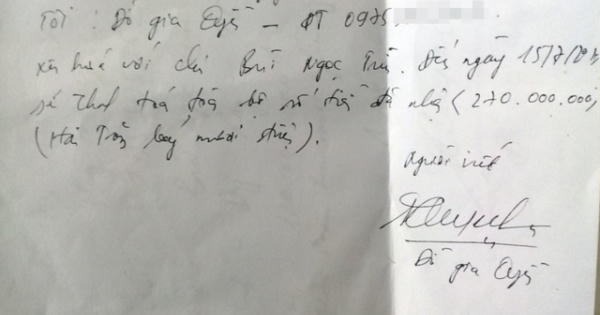 Tôi : Đỗ gia Quyền – ĐT 0975.
xin hứa với chị Bùi Ngọc. Đến ngày 15/7/
sẽ trả toàn bộ số tiền đã nhận (270.000.000,
(Hai Trăm bảy mươi triệu).
Người viết
Đỗ gia Quyền